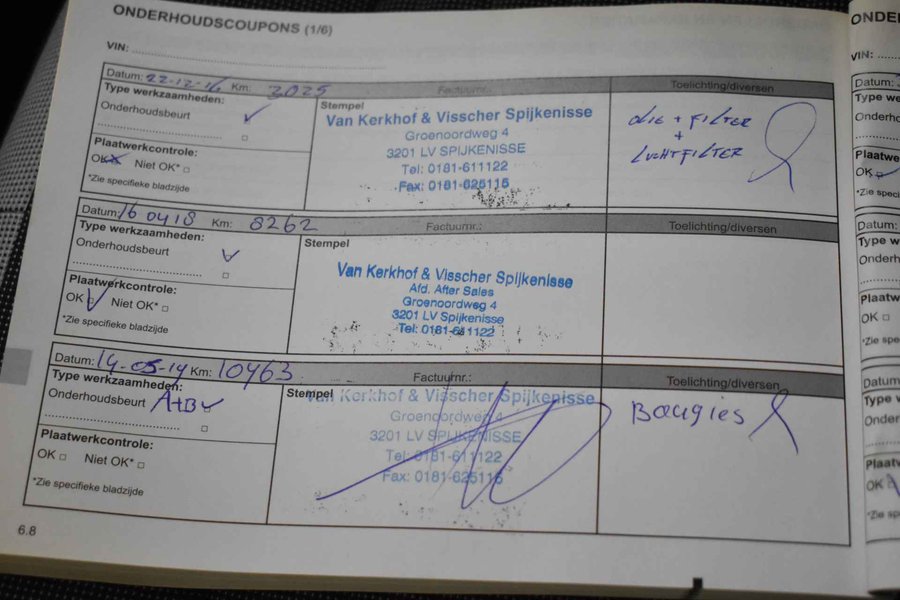 ONDERHOUDSCOUPONS (1/6)
VIN:
Datum: 22-12-16 Km: 3025 Factuurnr.: Toelichting/diversen
Type werkzaamheden:
Onderhoudsbeurt
Plaatwerkcontrole:
OK Niet OK*
*Zie specifieke bladzijde
Stempel
Van Kerkhof & Visscher Spijkenisse
Groenoordweg 4
3201 LV SPIJKENISSE
Tel: 0181-611122
Fax: 0181-625115
OLIE + FILTER
+
LUCHTFILTER
Datum: 16 04 18 Km: 8262 Factuurnr.: Toelichting/diversen
Type werkzaamheden:
Onderhoudsbeurt
Plaatwerkcontrole:
OK Niet OK*
*Zie specifieke bladzijde
Stempel
Van Kerkhof & Visscher Spijkenisse
Afd. After Sales
Groenoordweg 4
3201 LV Spijkenisse
Tel: 0181-611122
Datum: 14-05-19 Km: 10963 Factuurnr.: Toelichting/diversen
Type werkzaamheden:
Onderhoudsbeurt A+B
Plaatwerkcontrole:
OK Niet OK*
*Zie specifieke bladzijde
Stempel
Van Kerkhof & Visscher Spijkenisse
Groenoordweg 4
3201 LV SPIJKENISSE
Tel: 0181-611122
Fax: 0181-625115
Bougies
6.8
ONDE
VIN:
Datum:
Type we
Onderho
Plaatwer
OK
*Zie speci
Datum:
Type w
Onderh
Plaatw
OK
*Zie spe
Datum
Type
Onder
Plaat
OK
*Zie sp